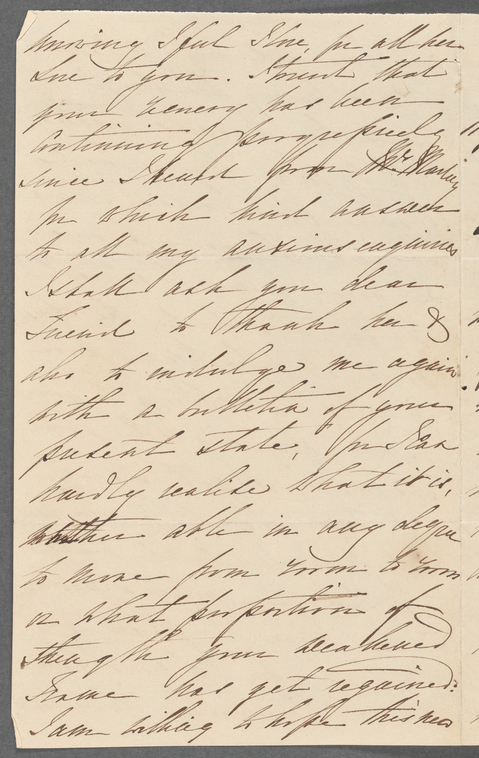 knowing I feel I love, for all her
love to you. I trust that
your energy has been
continuing progressively
since I heard from Mrs
for which kind answer
to all my anxious enquiries
I shall ask you dear
Friend to thank her &
also to indulge me again
with a bulletin of your
present state, for I can
hardly realise what it is,
whether able in any degree
to move from room to room
or what proportion of
strength your weakened
Frame has yet regained:
I am willing to hope this new